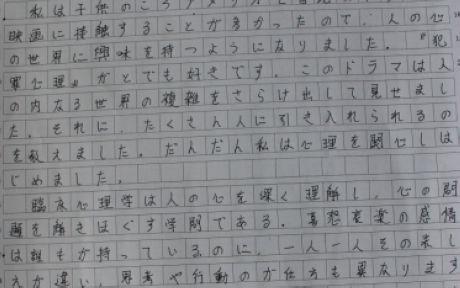 私は子供のころアメリカ
映画に接触することが多かったので、人の心
の世界に興味を持つようになりました。『犯
罪心理』がとでも好きです。このドラマは人
の内なる世界の複雑をさらけ出して見せまし
た。それに、たくさん人に引き入れられるの
を教えました。だんだん私は心理を関心しは
じめました。
臨床心理学は人の心を深く理解し、心の問
題を解きほぐす学問である。喜怒哀楽の感情
は誰もが持っているのに、一人一人その表し
え方違い、思考や行動のが仕方も異なります